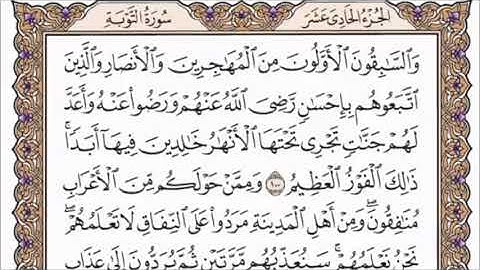 الجزء الحادي عشر سورة التوبة
وَالسَّابِقُونَ الْأَوَّلُونَ مِنَ الْمُهَاجِرِينَ وَالْأَنصَارِ وَالَّذِينَ
اتَّبَعُوهُم بِإِحْسَانٍ رَّضِيَ اللَّهُ عَنْهُمْ وَرَضُوا عَنْهُ وَأَعَدَّ
لَهُمْ جَنَّاتٍ تَجْرِي تَحْتَهَا الْأَنْهَارُ خَالِدِينَ فِيهَا أَبَدًا ۚ
ذَٰلِكَ الْفَوْزُ الْعَظِيمُ ۝١٠٠ وَمِمَّنْ حَوْلَكُم مِّنَ الْأَعْرَابِ
مُنَافِقُونَ ۖ وَمِنْ أَهْلِ الْمَدِينَةِ مَرَدُوا عَلَى النِّفَاقِ لَا تَعْلَمُهُمْ ۖ
نَحْنُ نَعْلَمُهُمْ ۚ سَنُعَذِّبُهُم مَّرَّتَيْنِ ثُمَّ يُرَدُّونَ إِلَىٰ عَذَابٍ